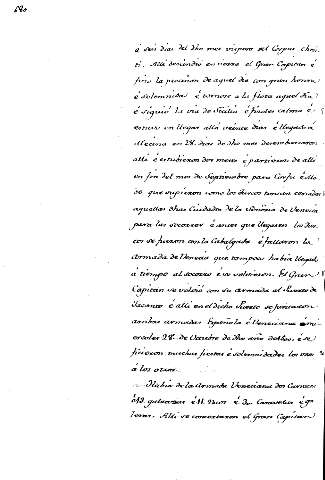 á seis dias del dho mes vispera del Corpus Chris-
ti. Alli descendió en tierra el Gran Capitan é
fizo la procesion de aquel dia con gran honra
é solemnidad é tornose á la flota aquel dia
é siguió la via de Sicilia é fizoles calma é
en llegar allá veinte dias é llegaron á
Mecina en 28. dias de dho mes desembarcaron
alli é estubieron dos meses é partieron de alli
en fin del mes de Septiembre para Corfú é
que supieron como los Turcos tenian cercadas
aquellas dhas Ciudades de la Señoria de Venecia
para las socorrer é antes que llegasen los Tur-
cos se fueron con la Cabalgada é fallaron la
Armada de Venecia que tampoco habia llegado
á tiempo al socorro é se volvieron. El Gran
Capitan se volvió con su armada al Puerto de
Jacanto é alli en el dicho Puerto se juntaron
ambas armadas Española é Veneciana
miercoles 28. de Octubre de dho año de é se
ficieron muchas fiestas é solemnidades los unos
á los otros.
Habia de la Armada Veneciana dos Carracas
é 19. galeazas é 11. naos é
Alli se concertaron el Gran Capitan